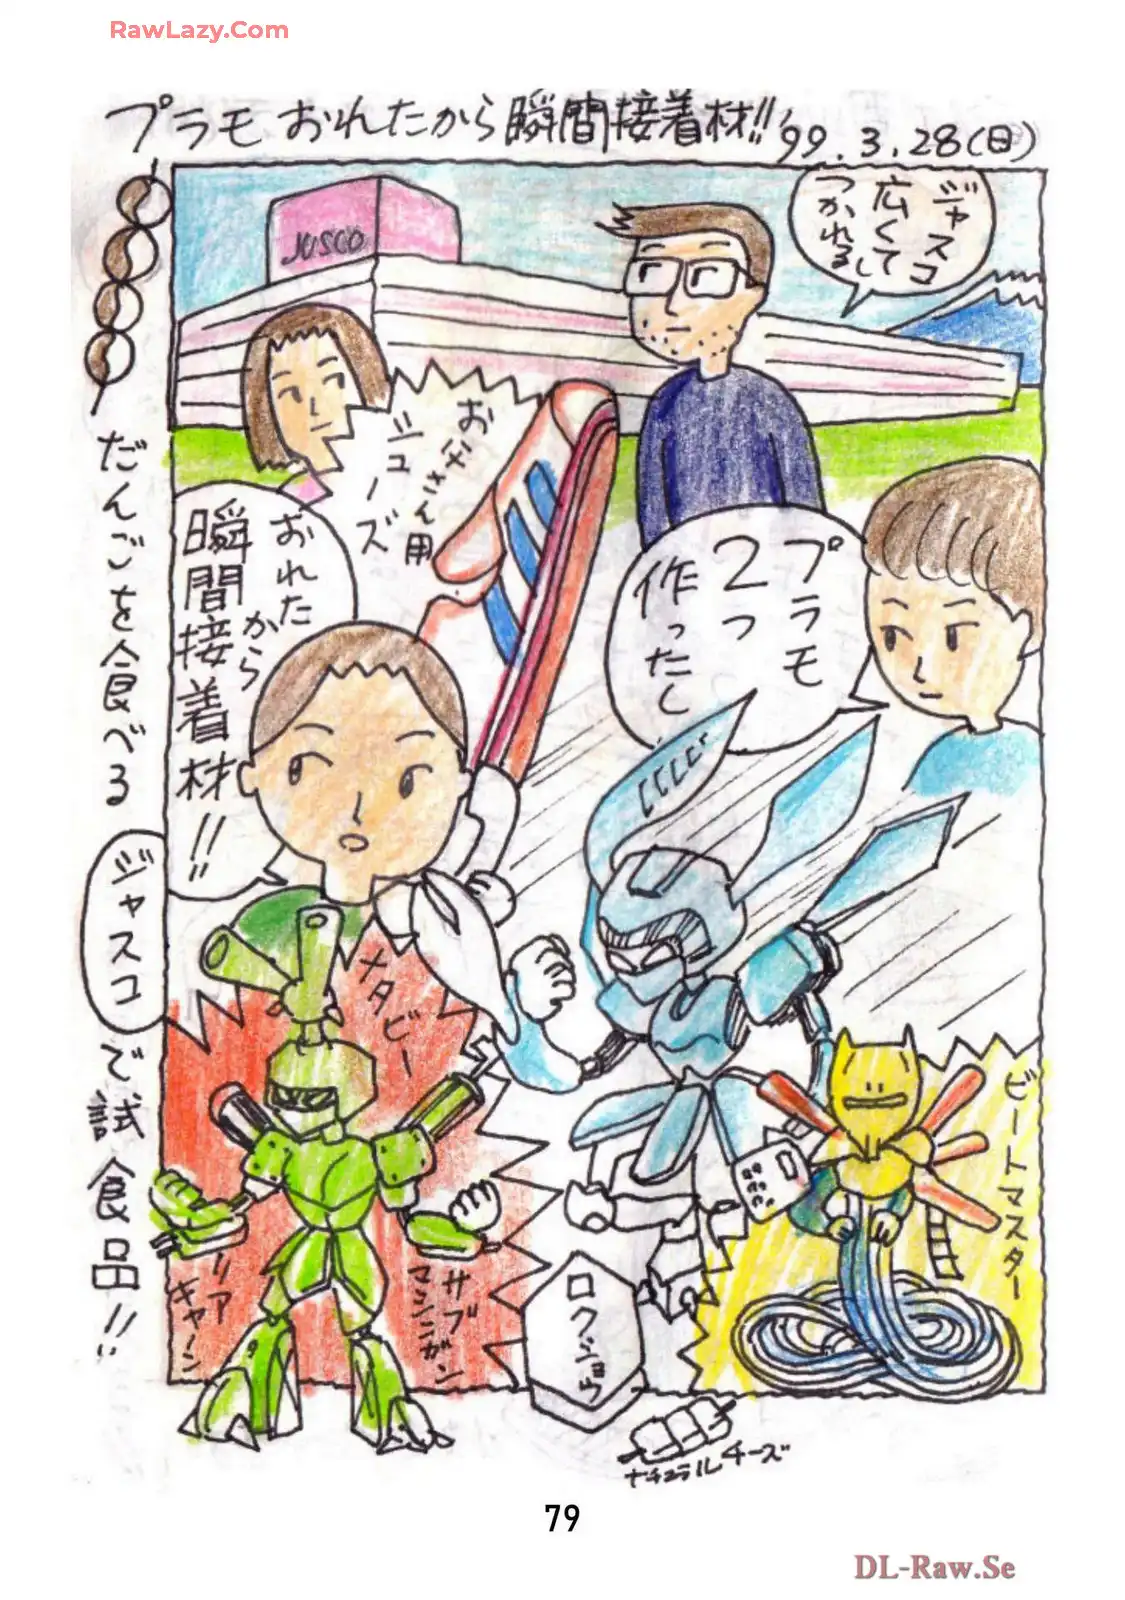 RawLazy.Com
プラモおれたから瞬間接着材!! '99.3.28(日)
ジャスコ
広くて
つかれるし
JUSCO
お子さん用
シューズ
プラモ
2つ
作ったし
おれた
から
瞬間接着材!!
だんごを食べる
ジャスコ
で試食品!!
メタビー
サブ
マシンガン
ロクショウ
ビートマスター
ナチュラルチーズ
79
DL-Raw.Se